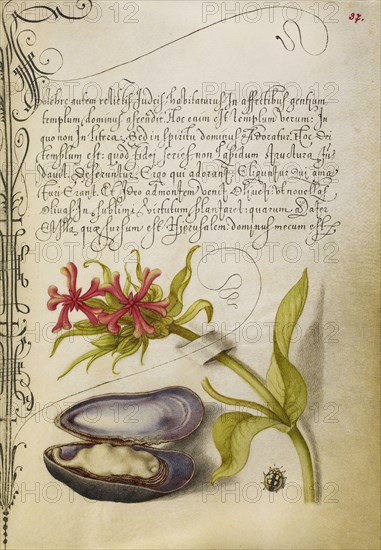 37.
autem relictis Judeis habitaturus In affectibus gentium
templum dominus ascendit. Hoc enim est templum verum: In
quo non In litera: Sed in spiritu dominus Adoratur. Hoc Dei
templum est: quod fidei series non lapidum structura
Deseruntur Ergo qui adorant: Eliguntur qui ama
turi Erant. Et Ideo ad montem venit Oliueti: vt nouellas
Oliuas In sublimi virtutum plantaret: quarum Mater
Est Illa quæ sursum est Hierusalem: dominus mecum est